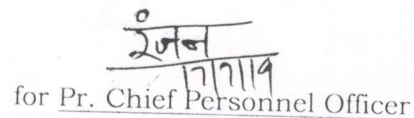 रंजन
17/7/19
for Pr. Chief Personnel Officer